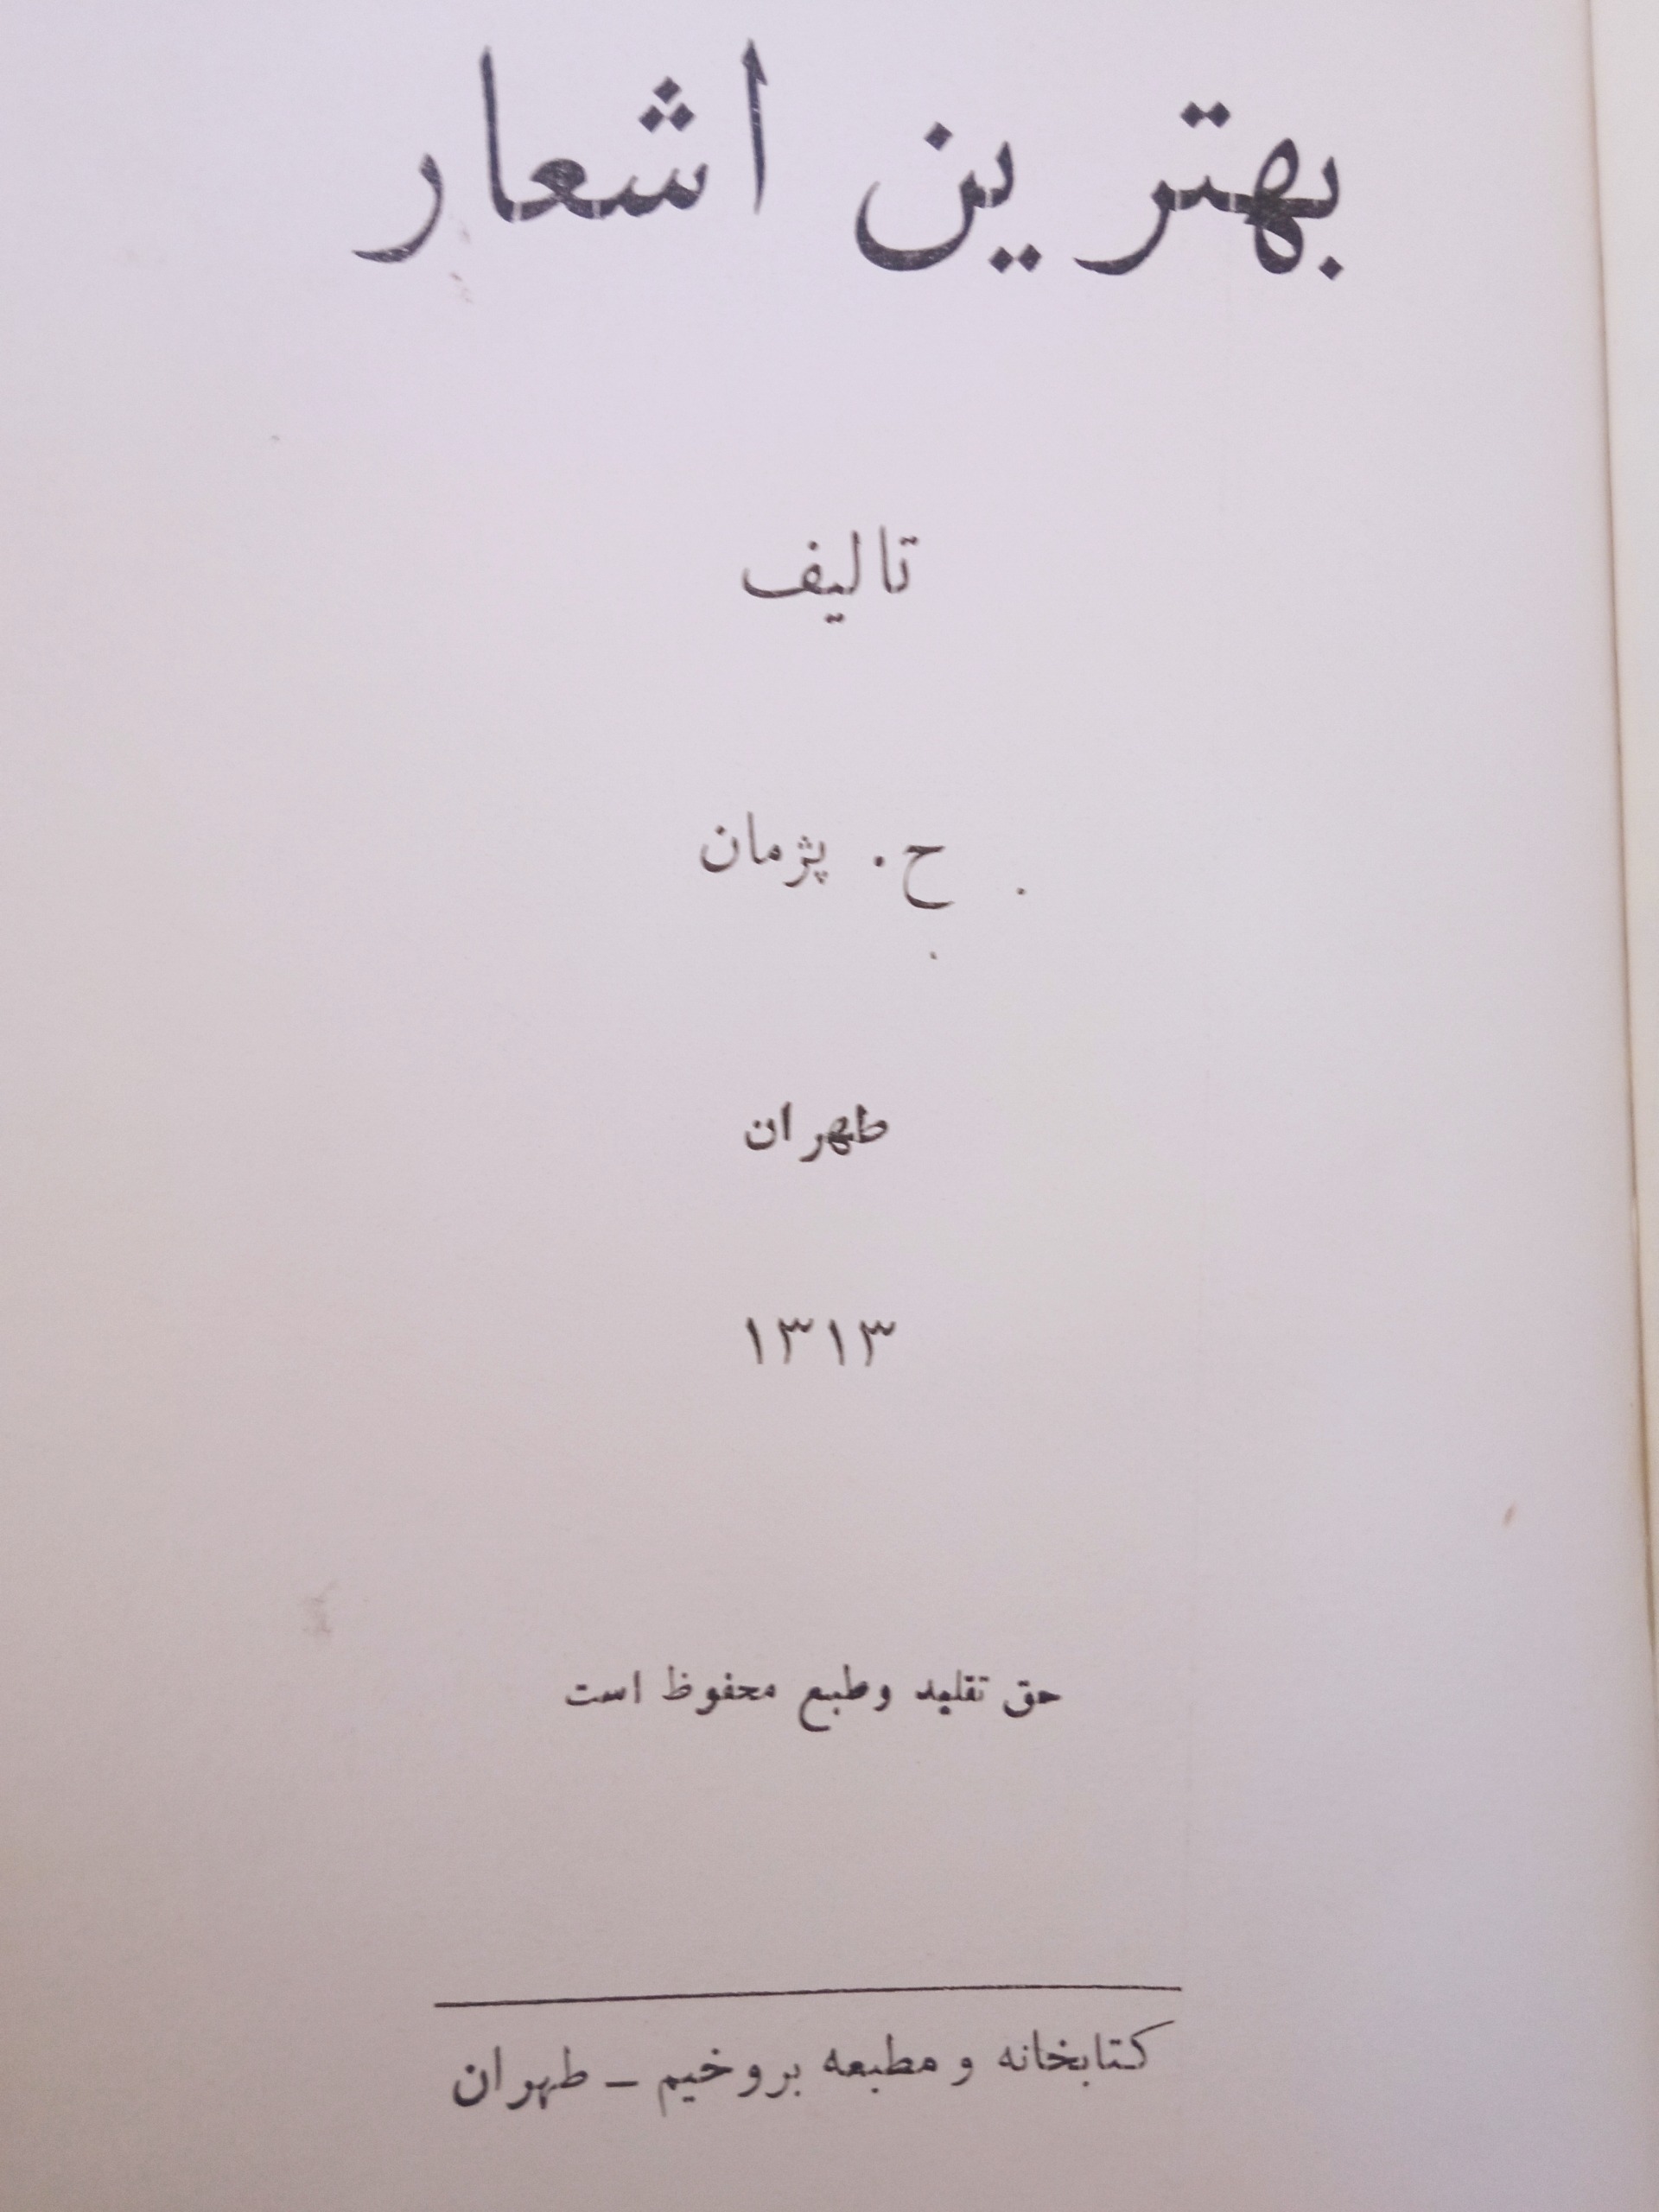 بهترین اشعار
تالیف
ح. پژمان
طهران
۱۳۱۳
حق تقلید وطبع محفوظ است
کتابخانه و مطبعه بروخیم – طهران